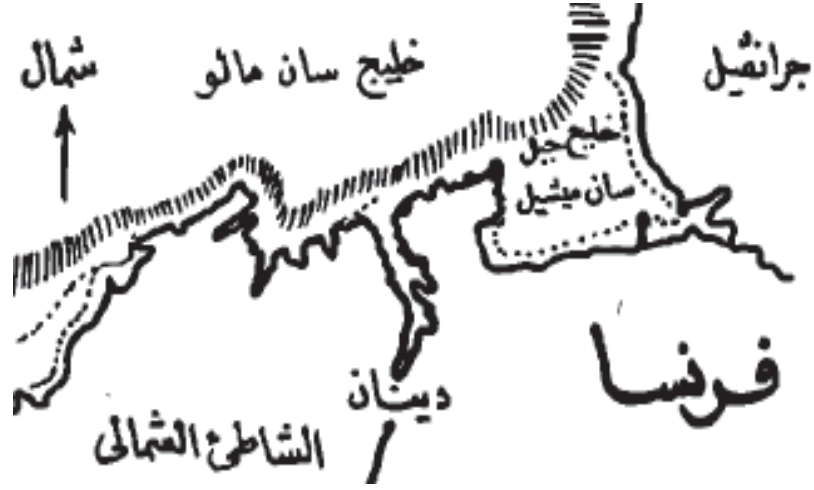 شمال
خليج سان مالو
جرانڤيل
خليج جبل
سان ميشيل
فرنسا
دينان
الشاطئ الشمالى